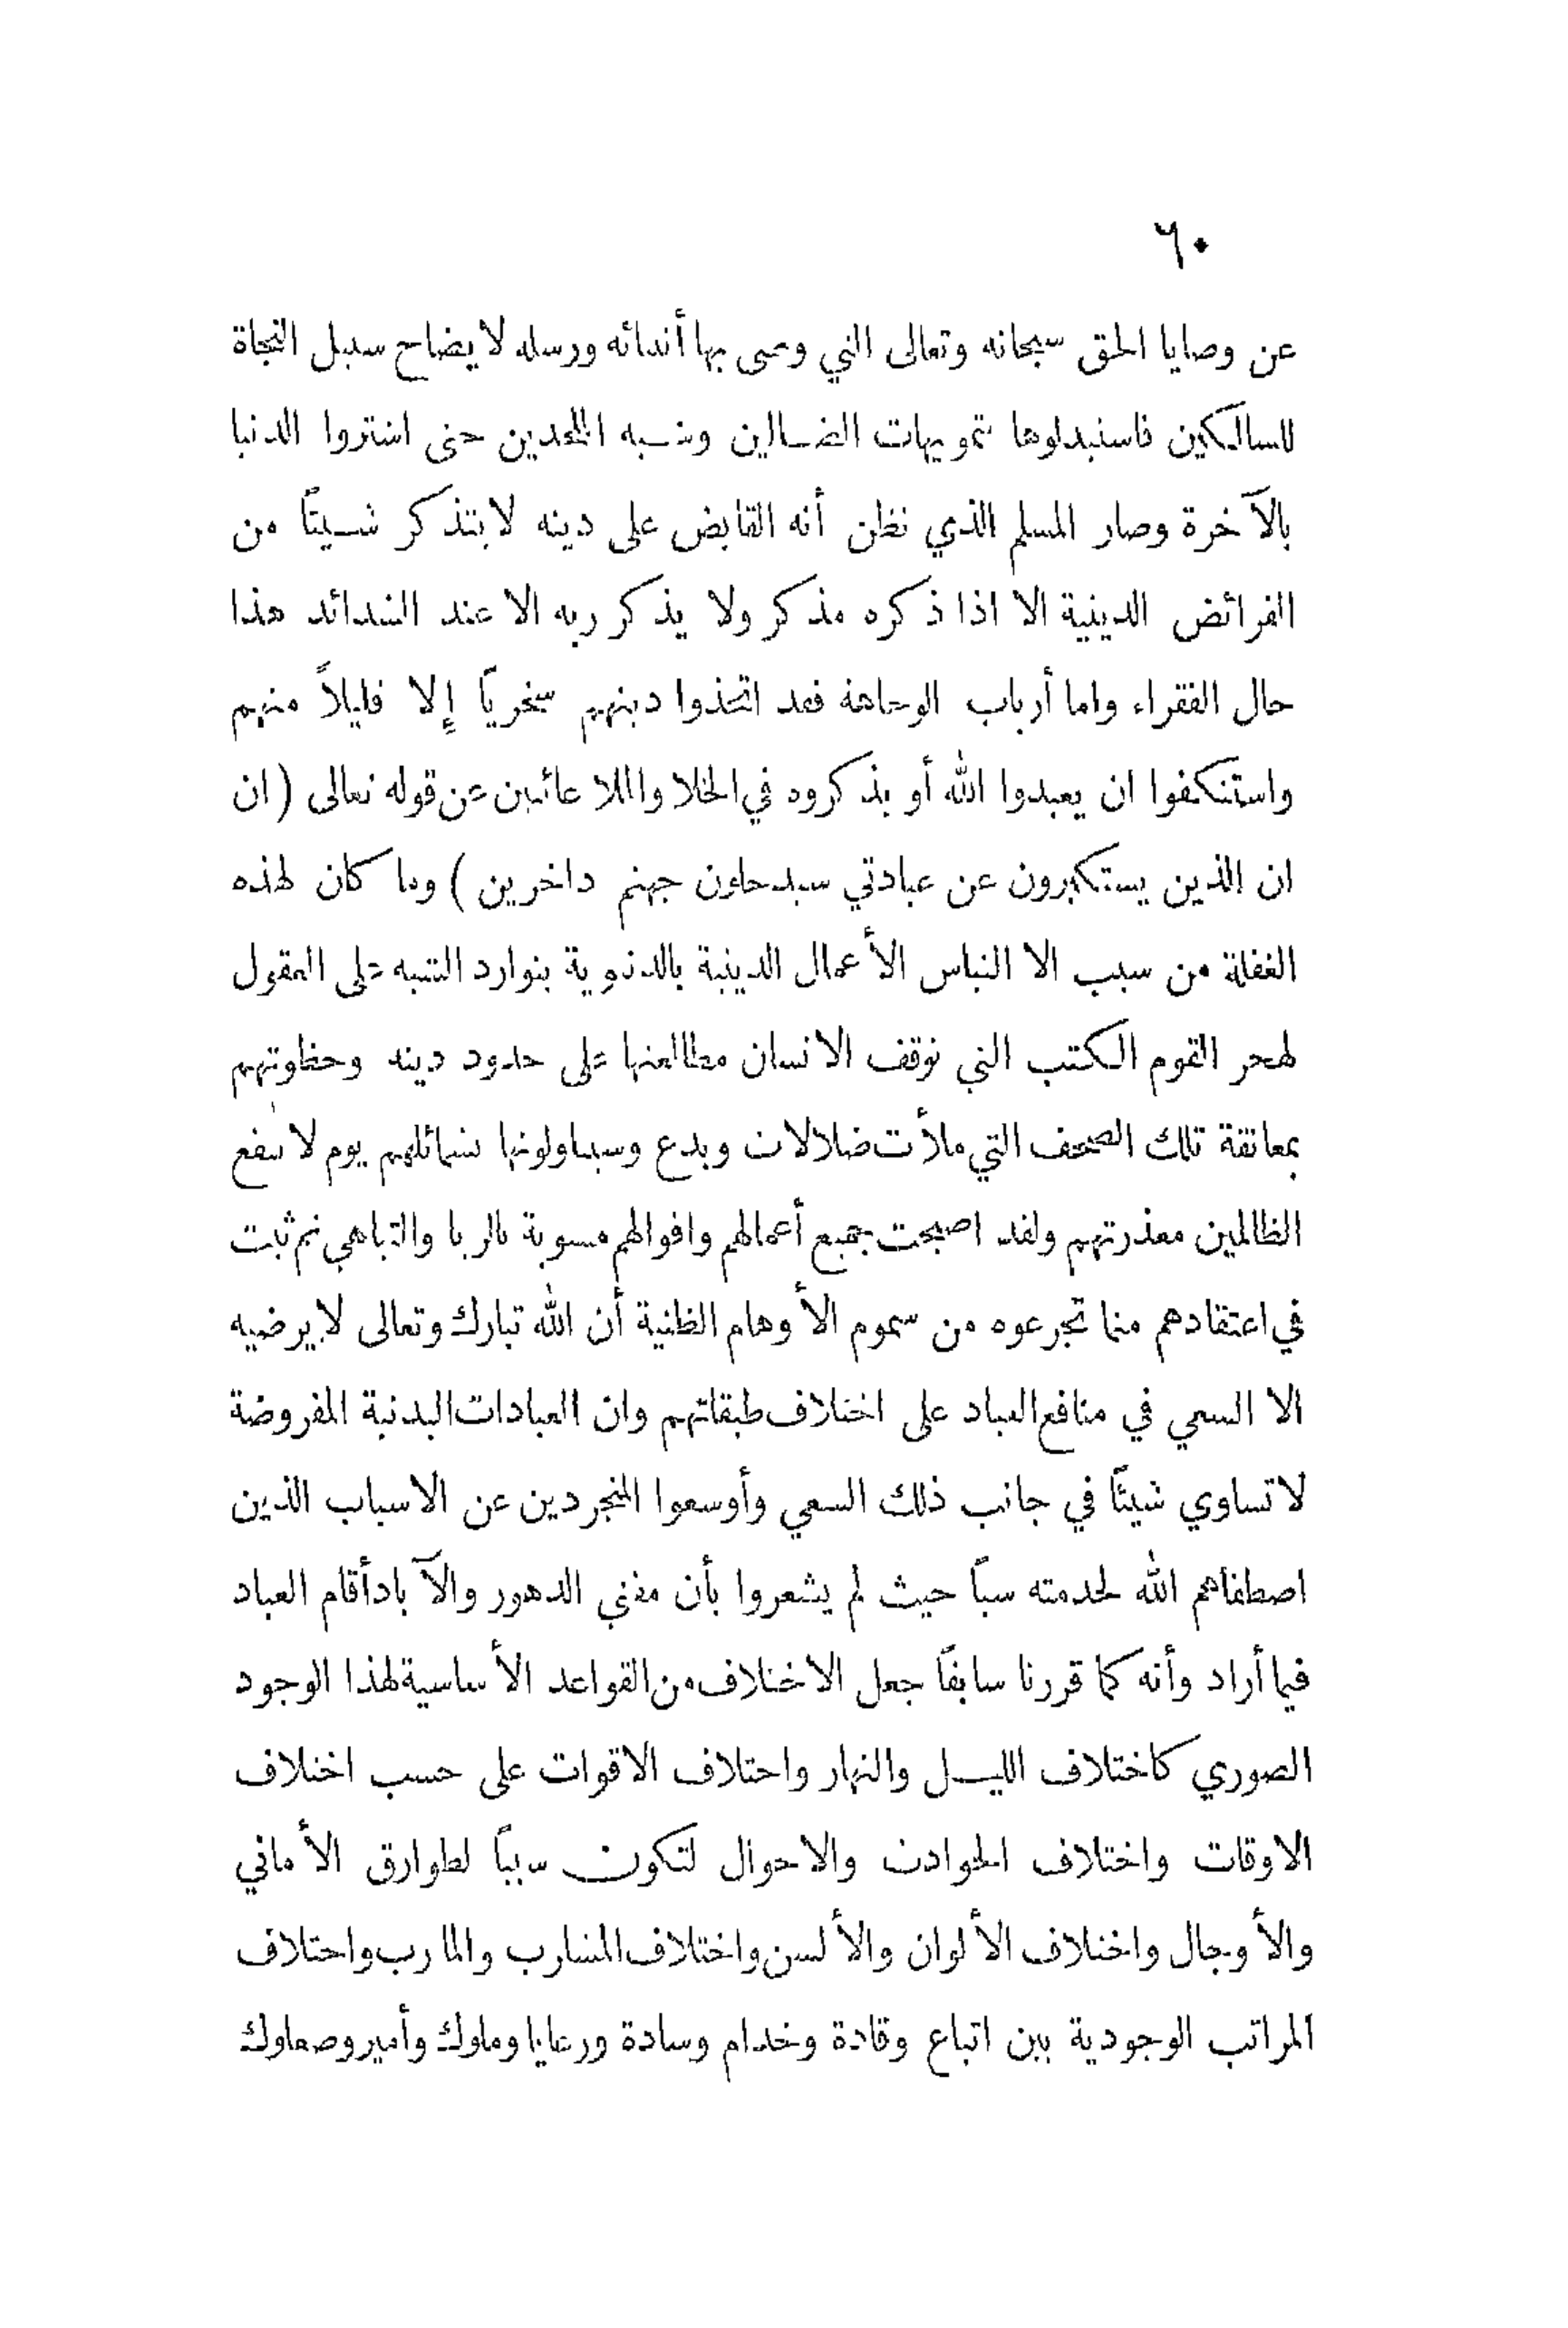 ٦٠
عن وصايا الحق سبحانه وتعالى التي وصى بها أنبيائه ورسله لايضاح سبيل النجاة
للسالكين فاستبدلوها بتمويهات الضالين وشبه الملحدين حتى اشتروا الدنيا
بالآخرة وصار المسلم الذي نظن أنه القابض على دينه لايتذكر شيئًا من
الفرائض الدينية الا اذا ذكره مذكر ولا يذكر ربه الا عند الشدائد هذا
حال الفقراء واما أرباب الوجاهة فقد اتخذوا دينهم سخريًا إلا قليلاً منهم
واستنكفوا ان يعبدوا الله أو يذكروه في الخلا والملا غائبين عن قوله تعالى ( ان
ان الذين يستكبرون عن عبادتي سيدخلون جهنم داخرين ) وما كان لهذه
الغفلة من سبب الا التباس الأعمال الدينية بالدنيوية بتوارد الشبه على العقول
لهجر القوم الكتب التي توقف الانسان مطالعتها على حدود دينه وحظوتهم
بمعانقة تلك الصحف التي ملأت ضلالات وبدع وسيناولونها بشمائلهم يوم لا ينفع
الظالمين معذرتهم ولقد اصبحت جميع أعمالهم واقوالهم مشوبة بالريا والتباهي ثم ثبت
في اعتقادهم مما تجرعوه من سموم الأوهام الظنية أن الله تبارك وتعالى لا يرضيه
الا السعي في منافع العباد على اختلاف طبقاتهم وان العبادات البدنية المفروضة
لا تساوي شيئًا في جانب ذلك السعي وأوسعوا المتجردين عن الاسباب الذين
اصطفاهم الله لخدمته سبًا حيث لم يشعروا بأن مفني الدهور والآباد أقام العباد
فيما أراد وأنه كما قررنا سابقًا جعل الاختلاف من القواعد الأساسية لهذا الوجود
الصوري كاختلاف الليل والنهار واختلاف الاقوات على حسب اختلاف
الاوقات واختلاف الحوادث والاحوال لتكون سببًا لطوارق الأماني
والأوجال واختلاف الألوان والألسن واختلاف المشارب والمآرب واختلاف
المراتب الوجودية بين اتباع وقادة وخدام وسادة ورعايا وملوك وأمير وصعلوك